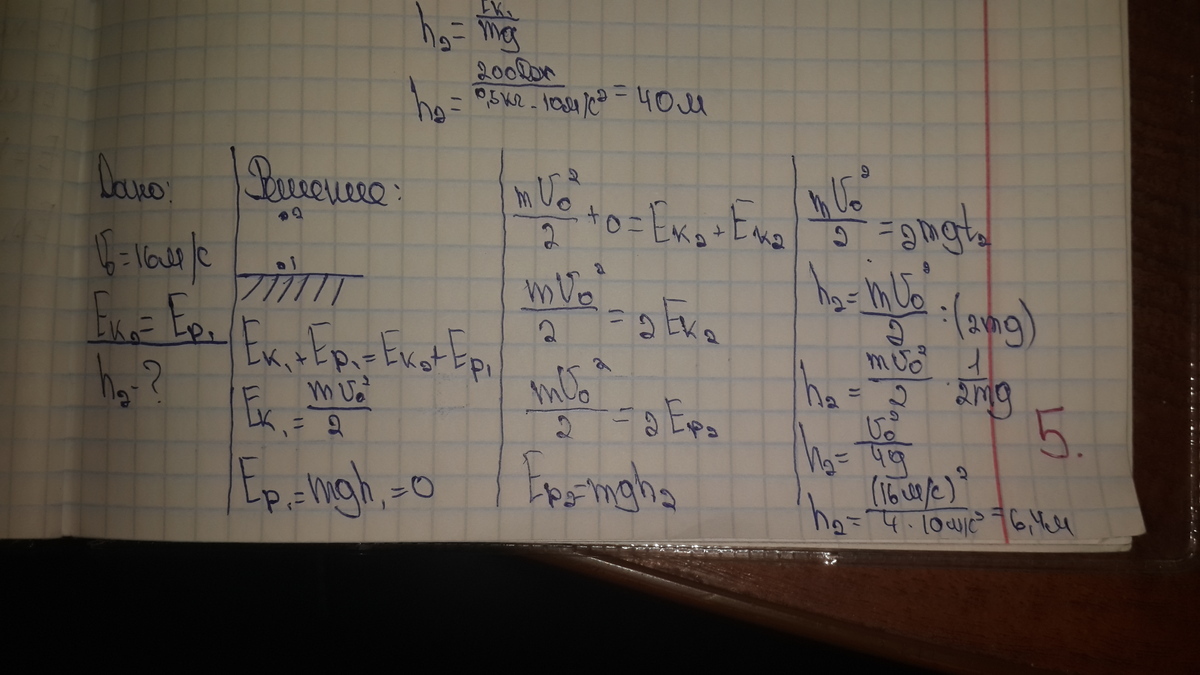 h₂ = Eк₁/mg
h₂ = 200Дж/0,5кг · 10м/с² = 40м
Дано:
V₀ = 16м/с
Eк₂ = Ep₁
h₂ - ?
Решение:
•2
•1
Eк₁ + Ep₁ = Eк₂ + Ep₁
Eк₁ = mV₀²/2
Ep₁ = mgh₁ = 0
mV₀²/2 + 0 = Eк₂ + Eк₂
mV₀²/2 = 2Eк₂
mV₀²/2 = 2Ep₂
Ep₂ = mgh₂
mV₀²/2 = 2mgt₂
h₂ = mV₀²/2 : (2mg)
h₂ = mV₀²/2 · 1/2mg
h₂ = V₀²/4g
h₂ = (16м/с)²/4 · 10м/с² = 6,4м
5.